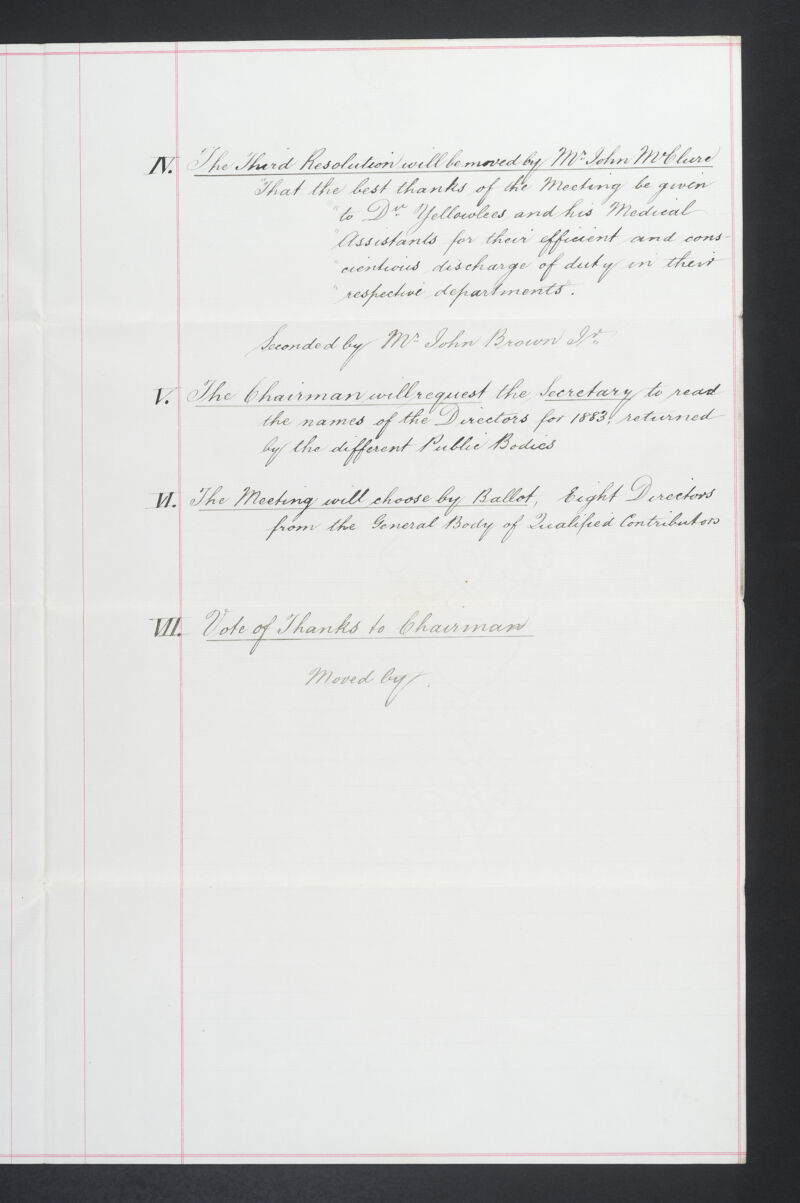 IV. The Third Resolution will be moved by Mr. John McClure
"That the best thanks of the Meeting be given
" to Dr. Yellowlees and his Medical
" Assistants for their efficient and cons-
" cientious discharge of duty in their
" respective departments".
Seconded by Mr. John Brown Jr.
V. The Chairman will request the Secretary to read
the names of the Directors for 1883, returned
by the different Public Bodies
VI. The Meeting will choose by Ballot, Eight Directors
from the General Body of Qualified Contributors
VII. Vote of Thanks to Chairman
Moved by